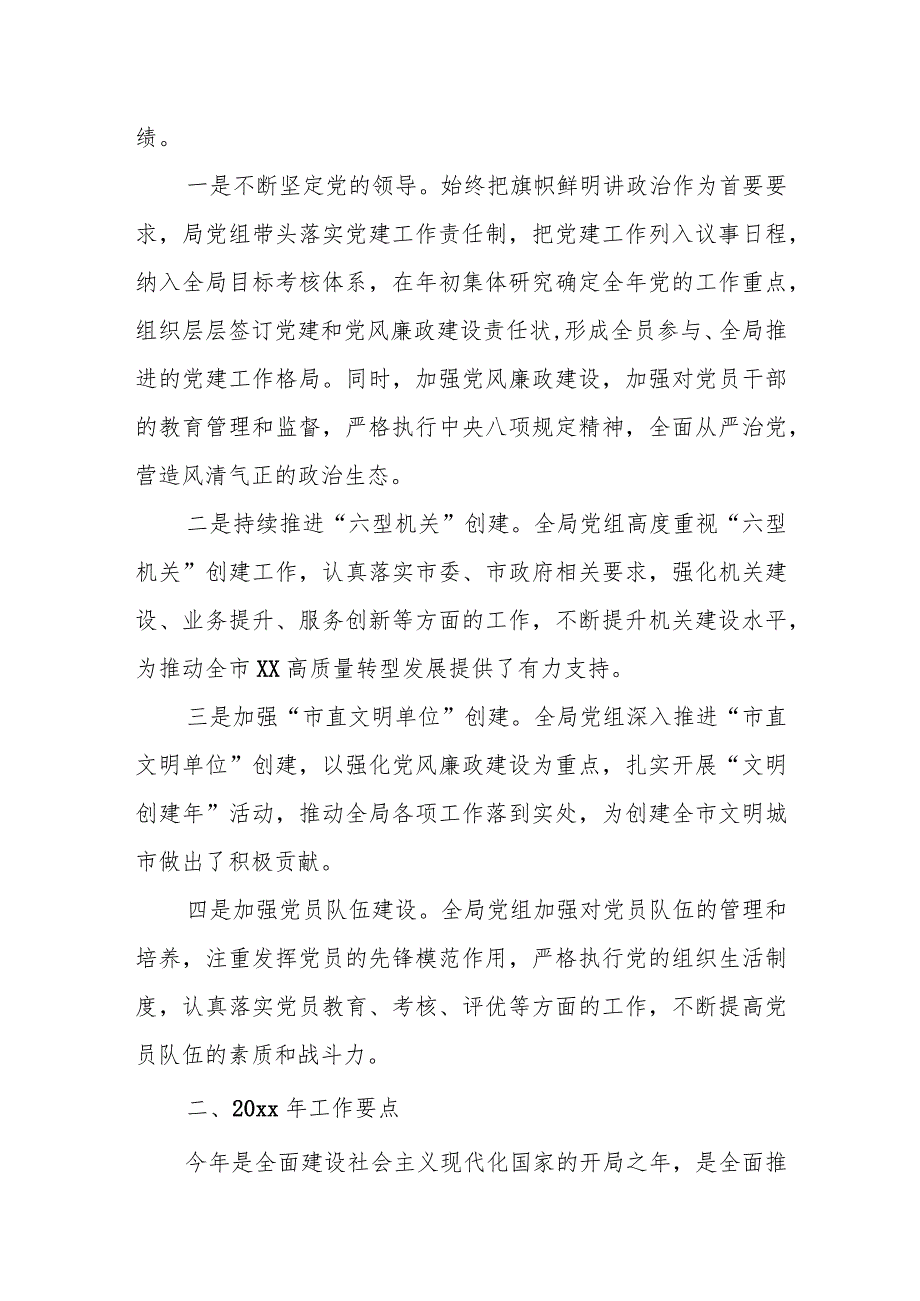 绩。
一是不断坚定党的领导。始终把旗帜鲜明讲政治作为首要要
求，局党组带头落实党建工作责任制，把党建工作列入议事日程，
纳入全局目标考核体系，在年初集体研究确定全年党的工作重点，
组织层层签订党建和党风廉政建设责任状,形成全员参与、全局推
进的党建工作格局。同时，加强党风廉政建设，加强对党员干部
的教育管理和监督，严格执行中央八项规定精神，全面从严治党，
营造风清气正的政治生态。
二是持续推进“六型机关”创建。全局党组高度重视“六型
机关”创建工作，认真落实市委、市政府相关要求，强化机关建
设、业务提升、服务创新等方面的工作，不断提升机关建设水平，
为推动全市 XX 高质量转型发展提供了有力支持。
三是加强“市直文明单位”创建。全局党组深入推进“市直
文明单位”创建，以强化党风廉政建设为重点，扎实开展“文明
创建年”活动，推动全局各项工作落到实处，为创建全市文明城
市做出了积极贡献。
四是加强党员队伍建设。全局党组加强对党员队伍的管理和
培养，注重发挥党员的先锋模范作用，严格执行党的组织生活制
度，认真落实党员教育、考核、评优等方面的工作，不断提高党
员队伍的素质和战斗力。
二、20xx 年工作要点
今年是全面建设社会主义现代化国家的开局之年，是全面推